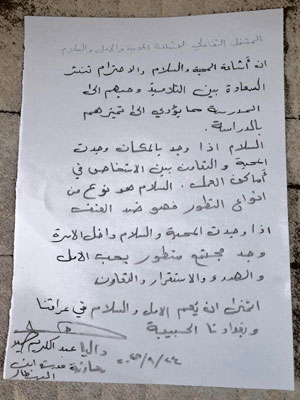 المشغل التفاعلي لإشاعة المحبة والامل والسلام
ان أشاعة المحبة والسلام والاحترام تنشر
السعادة بين التلاميذ وحبهم الى
المدرسة مما يؤدي الى تميزهم
بالدراسة .
السلام اذا وجد بالمكان وجدت
المحبة و التعاون بين الاشخاص في
أماكن العمل . السلام هو نوع من
انواع التطور فهو ضد العنف
اذا وجدت المحبة والسلام داخل الاسرة
وجد مجتمع متطور يحب الامل
و الهدوء والاستقرار والتعاون
اتمنى ان يعم الامل و السلام في عراقنا
وبغدادنا الحبيبة
داليا عبد الكريم